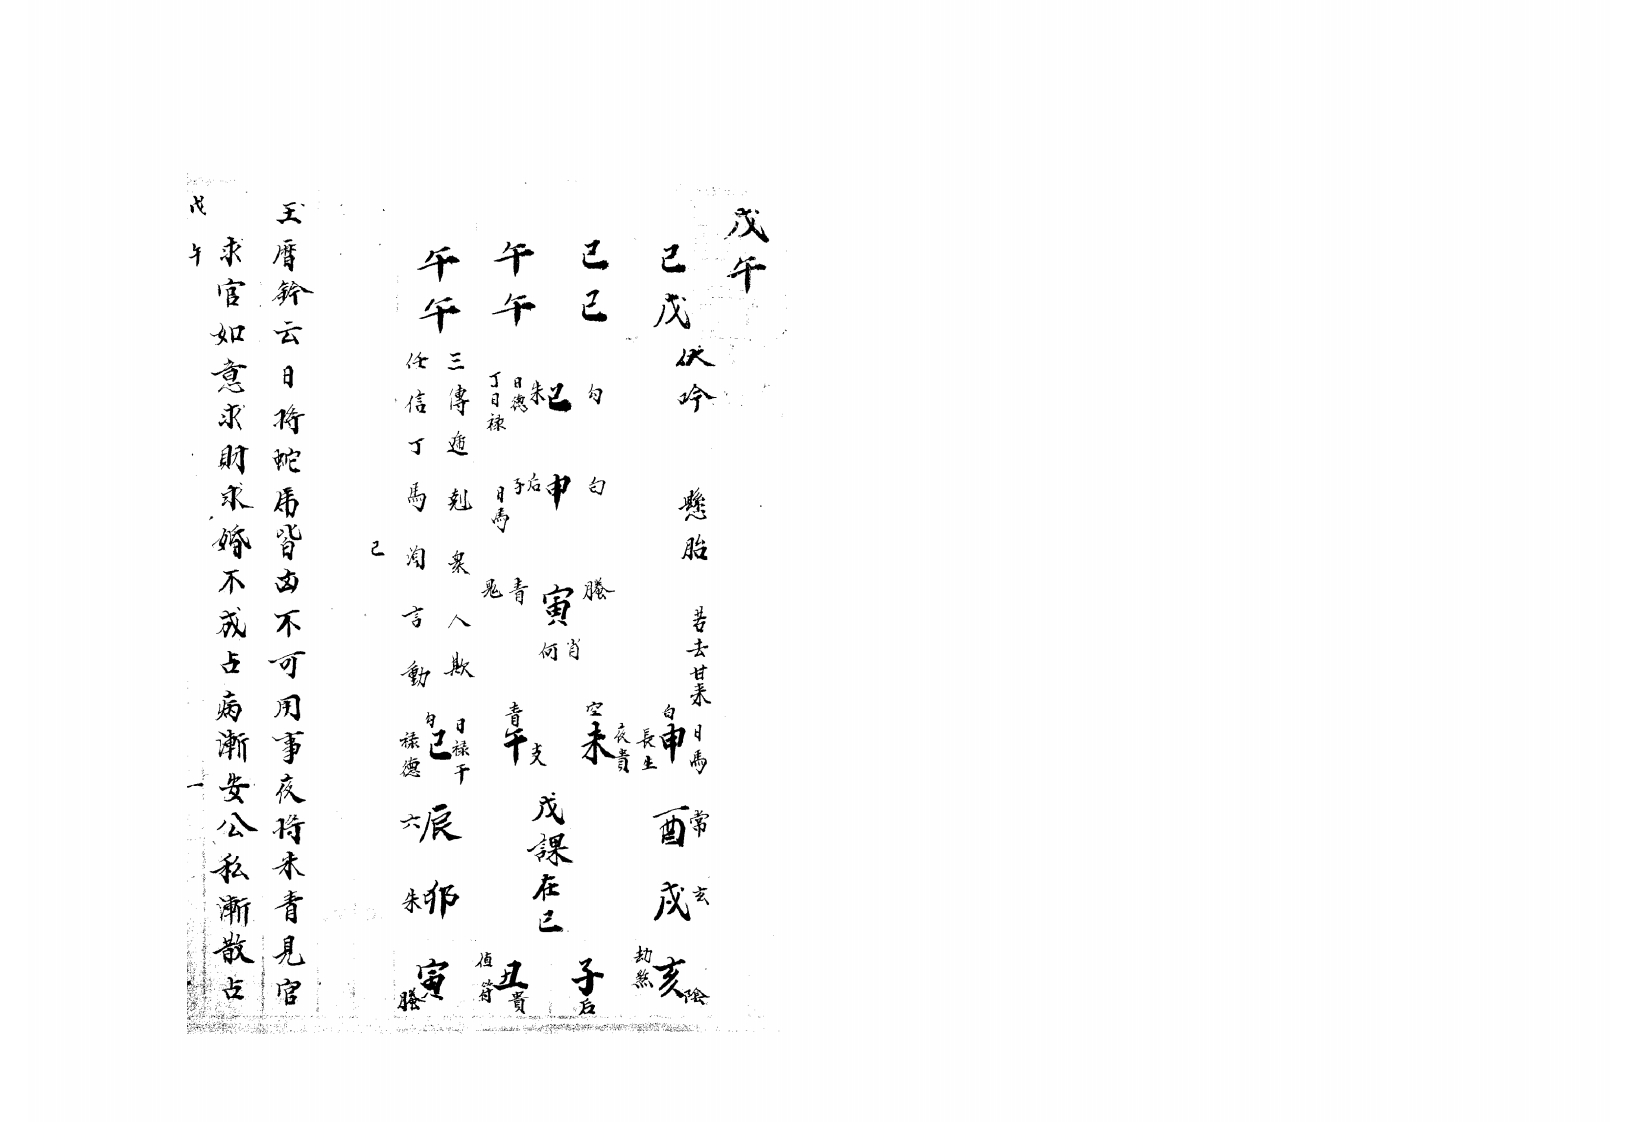 戊午
巳戊
巳巳
午午
午午
伏吟 懸胎 苦去甘来
勾 白 螣
巳 申 寅
朱 后 青
日德 子 鬼
丁日禄 日馬
肖
何
三傳逓剋衆人欺
任信丁馬洵言動
巳
白申日馬
長生
空未夜貴
青午支
勾巳日禄干
禄德
酉常
六辰
戊課在巳
戌玄
朱卯
劫煞亥陰
子后
值符丑貴
寅螣
玉曆鈐云日将蛇虎皆凶不可用事夜将朱青見官
求官如意求財求婚不成占病漸安公私漸散占
戊午
一